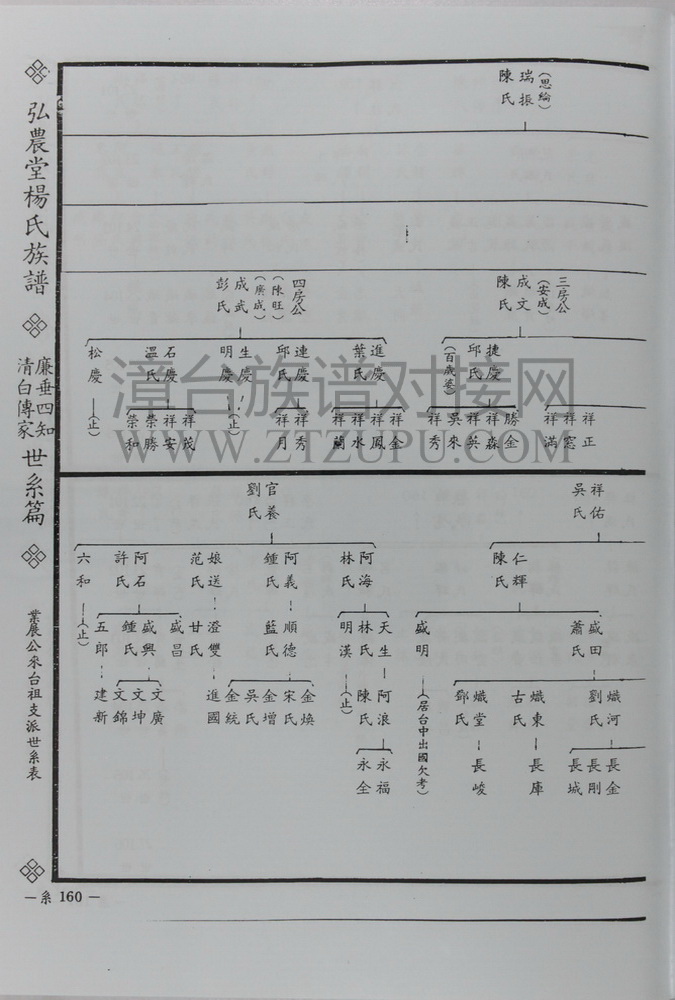 (思綸)
瑞振
陳氏
三房公
(安成)
成文
陳氏
四房公
(陳旺)
(廣成)
成武
彭氏
捷慶
邱氏
(百歲婆)
進慶
葉氏
連慶
邱氏
生慶
明慶
(止)
石慶
溫氏
松慶
(止)
祥正
祥窓
祥滿
勝金
祥森
祥英
吳來
祥秀
祥金
祥鳳
祥水
祥蘭
祥秀
祥月
祥茂
祥安
榮勝
榮和
祥佑
吳氏
官養
劉氏
仁輝
陳氏
阿海
林氏
阿義
鍾氏
娘送
范氏
阿石
許氏
六和
(止)
盛田
蕭氏
盛明
(居台中出國欠考)
天生
林氏
明漢
(止)
順德
藍氏
澄雙
甘氏
盛昌
盛興
鍾氏
五郎
熾河
劉氏
熾東
古氏
熾堂
鄧氏
阿浪
陳氏
金煥
宋氏
金增
吳氏
金統
進國
文廣
文坤
文錦
建新
長金
長剛
長城
長庫
長峻
永福
永全
弘農堂楊氏族譜
廉垂四知
清白傳家
世系篇
業展公來台祖支派世系表
— 系 160 —
漳台族谱对接网
WWW.ZTZUPU.COM